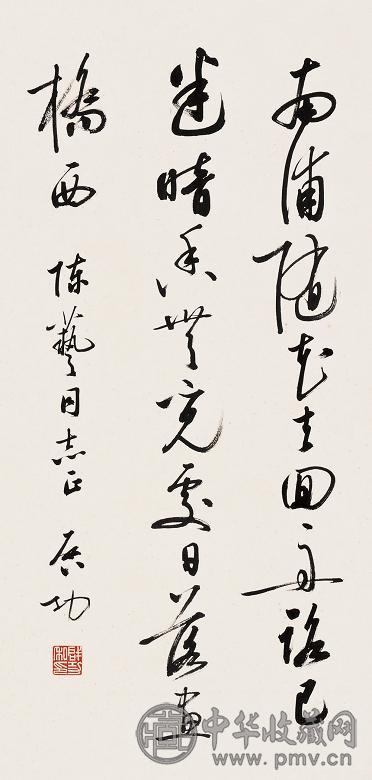 南浦随花去回舟路已
迷暗香無覓處日落畫
橋西 陈藝同志正 启功
中华收藏网
www.pmv.cn